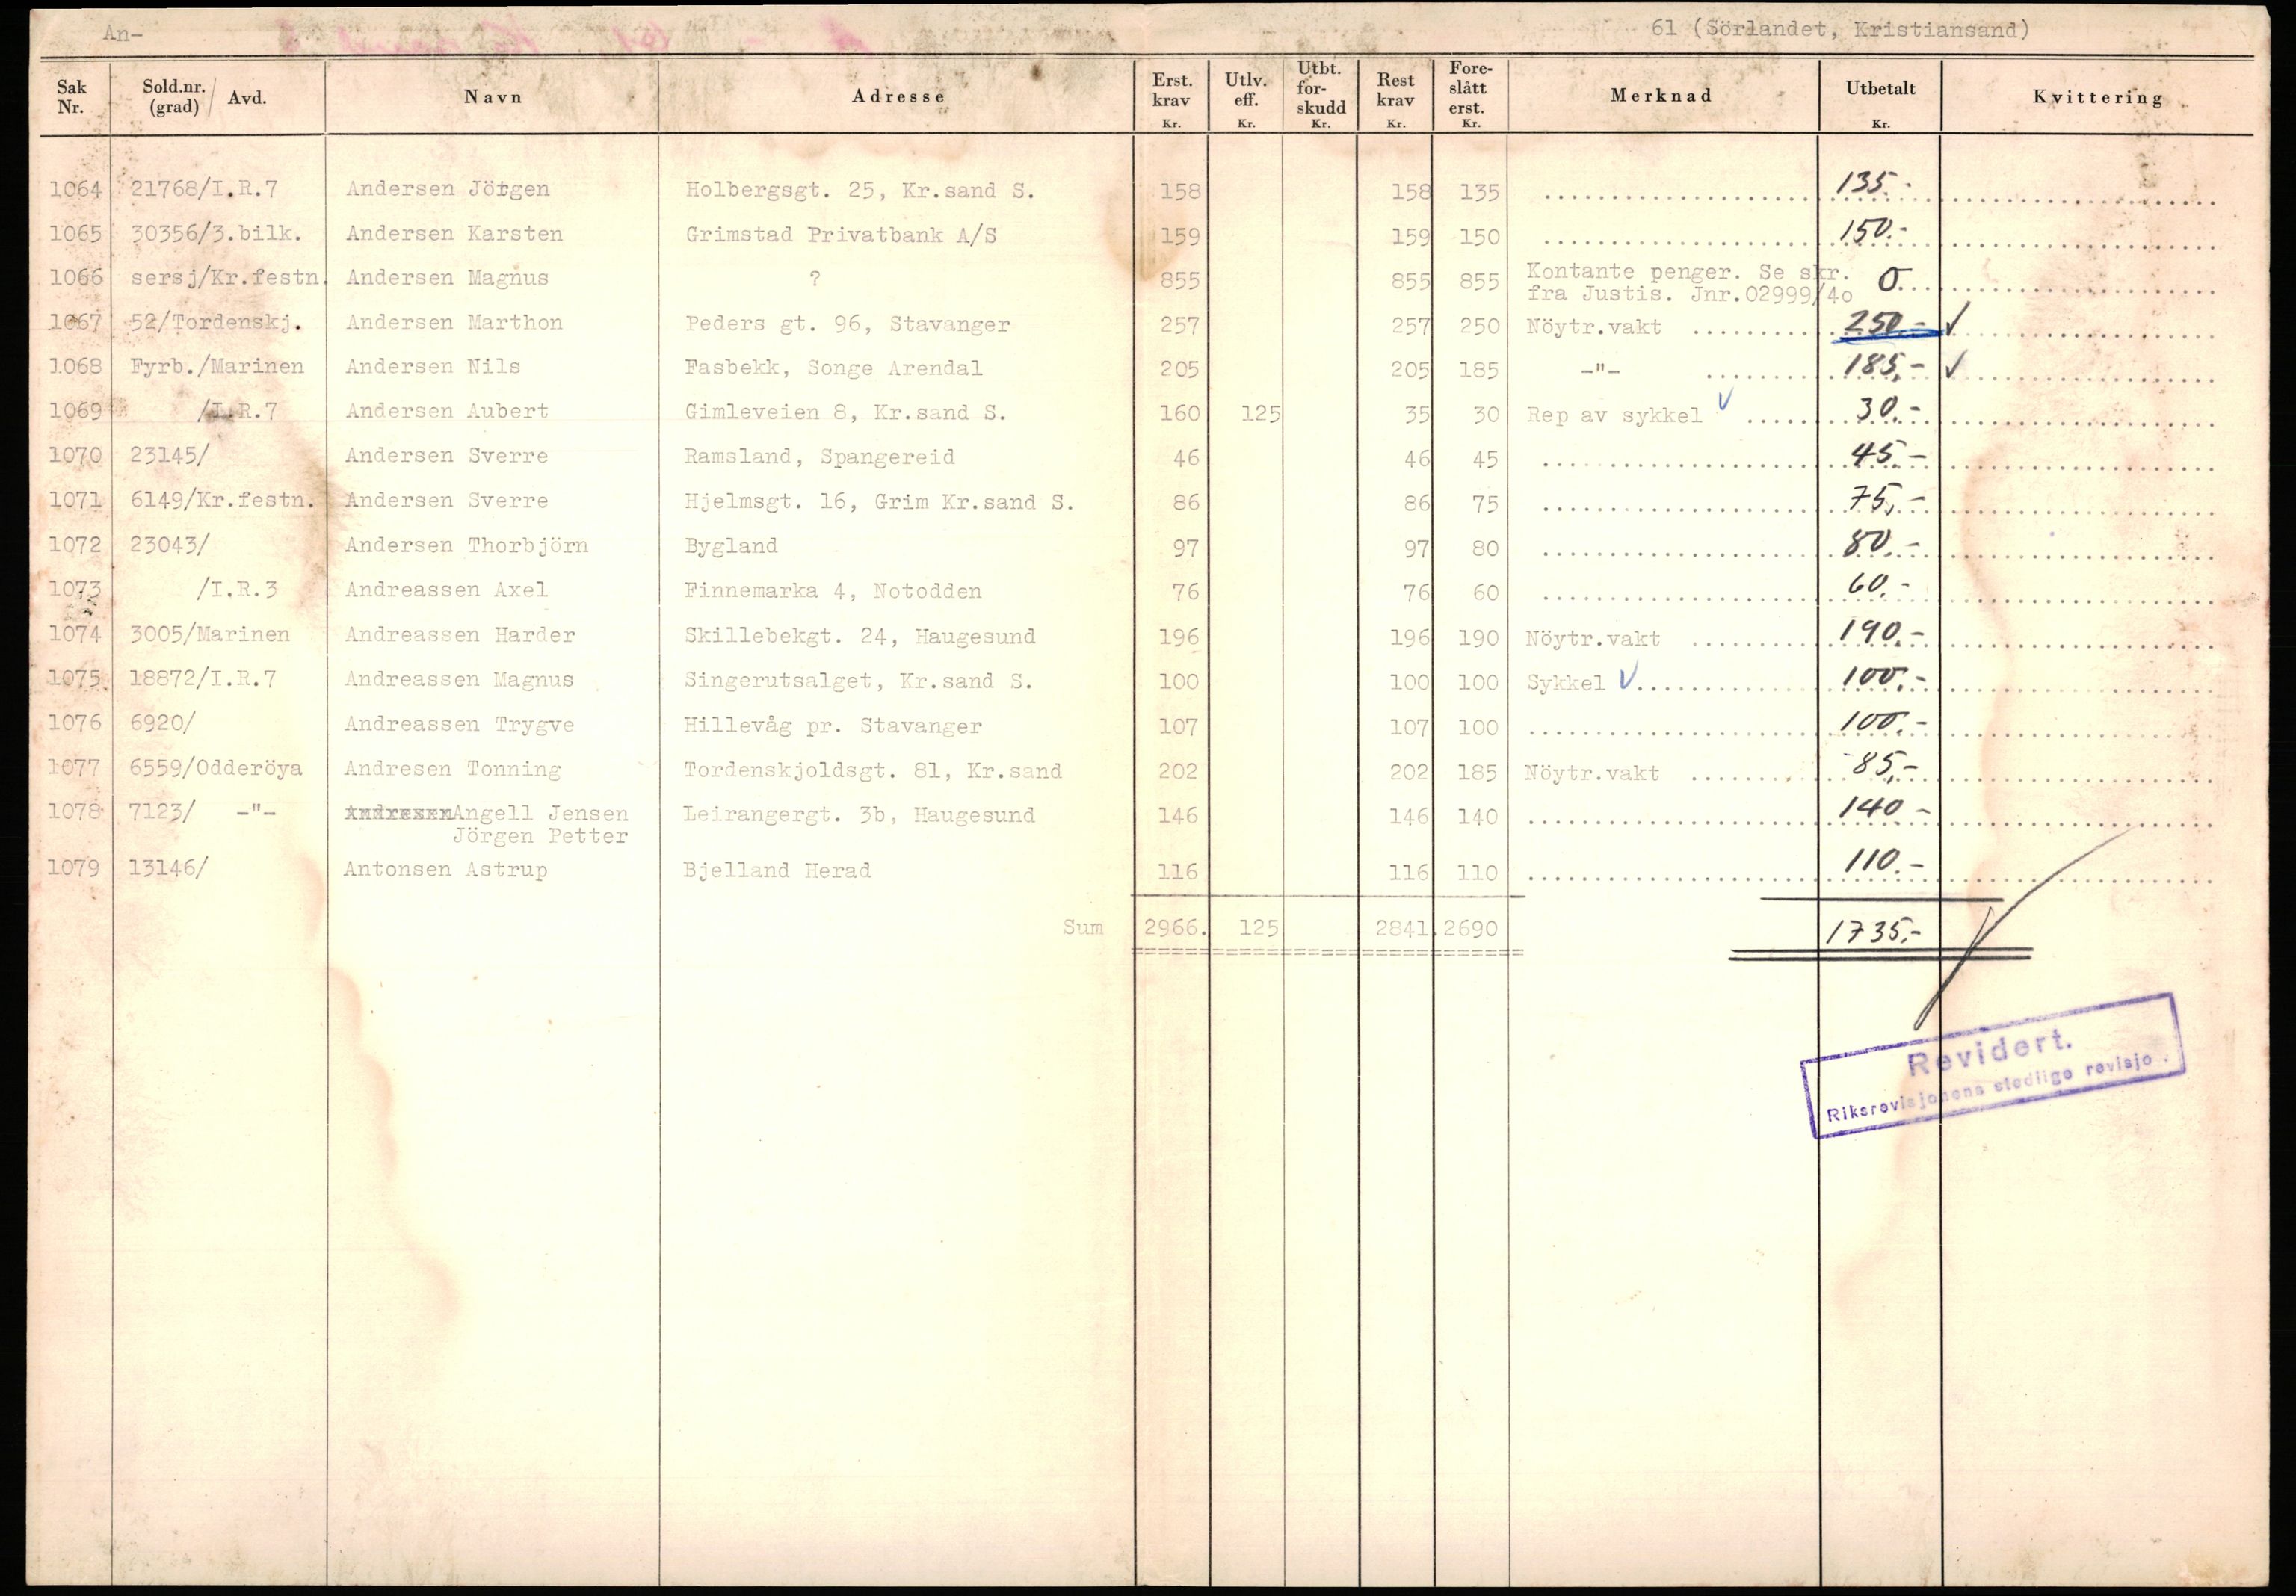 An- 61 (Sörlandet, Kristiansand)
Sak Nr. Sold.nr. (grad) / Avd. Navn Adresse Erst. krav Kr. Utlv. eff. Kr. Utbt. for- skudd Kr. Rest krav Kr. Fore- slått erst. Kr. Merknad Utbetalt Kr. Kvittering
1064 21768/I.R.7 Andersen Jörgen Holbergsgt. 25, Kr.sand S. 158 158 135 135.-
1065 30356/3.bilk. Andersen Karsten Grimstad Privatbank A/S 159 159 150 150.-
1066 sersj/Kr.festn. Andersen Magnus ? 855 855 855 Kontante penger. Se skr. 0
fra Justis. Jnr.02999/4o
1067 52/Tordenskj. Andersen Marthon Peders gt. 96, Stavanger 257 257 250 Nöytr.vakt 250.- ✓
1068 Fyrb./Marinen Andersen Nils Fasbekk, Songe Arendal 205 205 185 -"- 185,- ✓
1069 /I.R.7 Andersen Aubert Gimleveien 8, Kr.sand S. 160 125 35 30 Rep av sykkel ✓ 30.-
1070 23145/ Andersen Sverre Ramsland, Spangereid 46 46 45 45.-
1071 6149/Kr.festn. Andersen Sverre Hjelmsgt. 16, Grim Kr.sand S. 86 86 75 75,-
1072 23043/ Andersen Thorbjörn Bygland 97 97 80 80.-
1073 /I.R.3 Andreassen Axel Finnemarka 4, Notodden 76 76 60 60.-
1074 3005/Marinen Andreassen Harder Skillebekgt. 24, Haugesund 196 196 190 Nöytr.vakt 190.-
1075 18872/I.R.7 Andreassen Magnus Singerutsalget, Kr.sand S. 100 100 100 Sykkel ✓ 100.-
1076 6920/ Andreassen Trygve Hillevåg pr. Stavanger 107 107 100 100.-
1077 6559/Odderöya Andresen Tonning Tordenskjoldsgt. 81, Kr.sand 202 202 185 Nöytr.vakt 85,-
1078 7123/ -"- Angell Jensen Leirangergt. 3b, Haugesund 146 146 140 140 -
Jörgen Petter
1079 13146/ Antonsen Astrup Bjelland Herad 116 116 110 110.-
Sum 2966. 125 2841. 2690 1735.-
Revidert.
Riksrevisjonens stedlige revisjo .